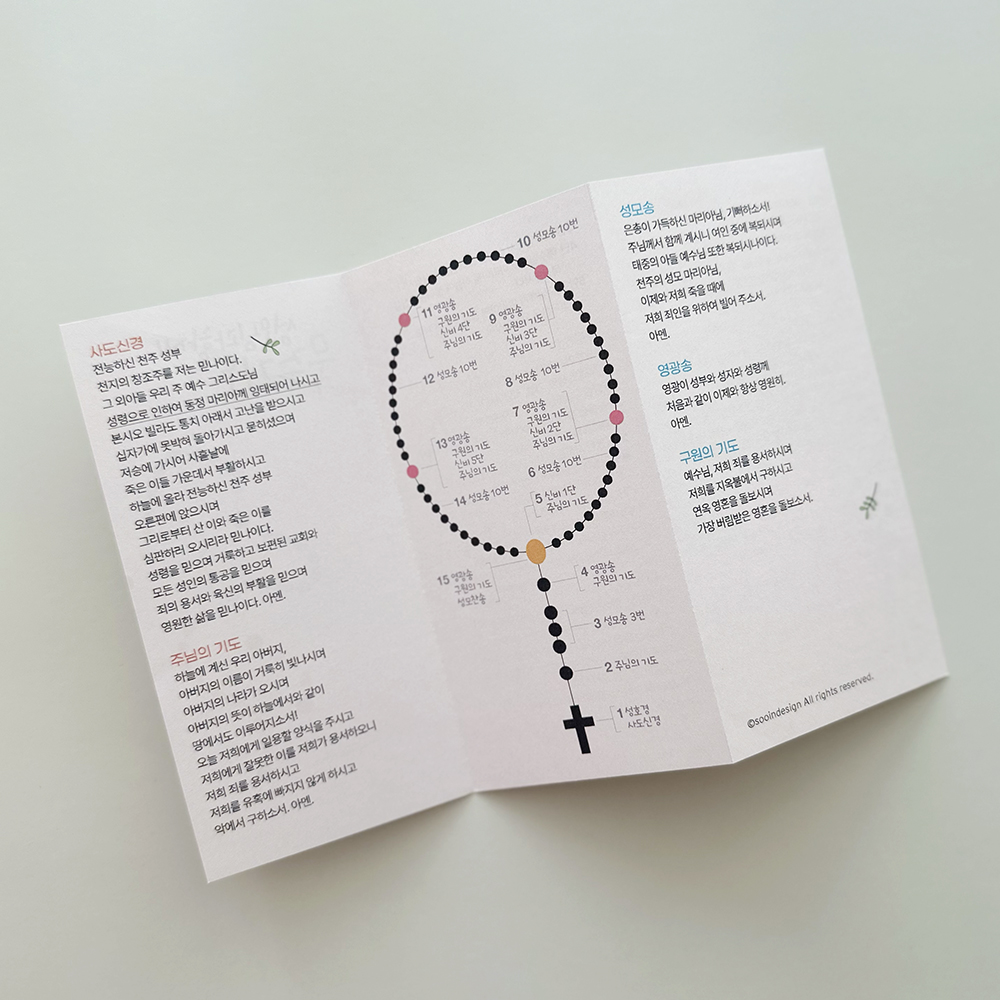 사도신경
전능하신 천주 성부
천지의 창조주를 저는 믿나이다.
그 외아들 우리 주 예수 그리스도님
성령으로 인하여 동정 마리아께 잉태되어 나시고
본시오 빌라도 통치 아래서 고난을 받으시고
십자가에 못박혀 돌아가시고 묻히셨으며
저승에 가시어 사흗날에
죽은 이들 가운데서 부활하시고
하늘에 올라 전능하신 천주 성부
오른편에 앉으시며
그리로부터 산 이와 죽은 이를
심판하러 오시리라 믿나이다.
성령을 믿으며 거룩하고 보편된 교회와
모든 성인의 통공을 믿으며
죄의 용서와 육신의 부활을 믿으며
영원한 삶을 믿나이다. 아멘.
주님의 기도
하늘에 계신 우리 아버지,
아버지의 이름이 거룩히 빛나시며
아버지의 나라가 오시며
아버지의 뜻이 하늘에서와 같이
땅에서도 이루어지소서!
오늘 저희에게 일용할 양식을 주시고
저희에게 잘못한 이를 저희가 용서하오니
저희 죄를 용서하시고
저희를 유혹에 빠지지 않게 하시고
악에서 구하소서. 아멘.
10 성모송 10번
11 영광송
구원의 기도
신비 4단
주님의 기도
9 영광송
구원의 기도
신비 3단
주님의 기도
12 성모송 10번
8 성모송 10번
7 영광송
구원의 기도
신비 2단
주님의 기도
13 영광송
구원의 기도
신비 5단
주님의 기도
6 성모송 10번
14 성모송 10번
5 신비 1단
주님의 기도
15 영광송
구원의 기도
성모찬송
4 영광송
구원의 기도
3 성모송 3번
2 주님의 기도
1 성호경
사도신경
성모송
은총이 가득하신 마리아님, 기뻐하소서!
주님께서 함께 계시니 여인 중에 복되시며
태중의 아들 예수님 또한 복되시나이다.
천주의 성모 마리아님,
이제와 저희 죽을 때에
저희 죄인을 위하여 빌어 주소서.
아멘.
영광송
영광이 성부와 성자와 성령께
처음과 같이 이제와 항상 영원히.
아멘.
구원의 기도
예수님, 저희 죄를 용서하시며
저희를 지옥불에서 구하시고
연옥 영혼을 돌보시며
가장 버림받은 영혼을 돌보소서.
©sooindesign All rights reserved.